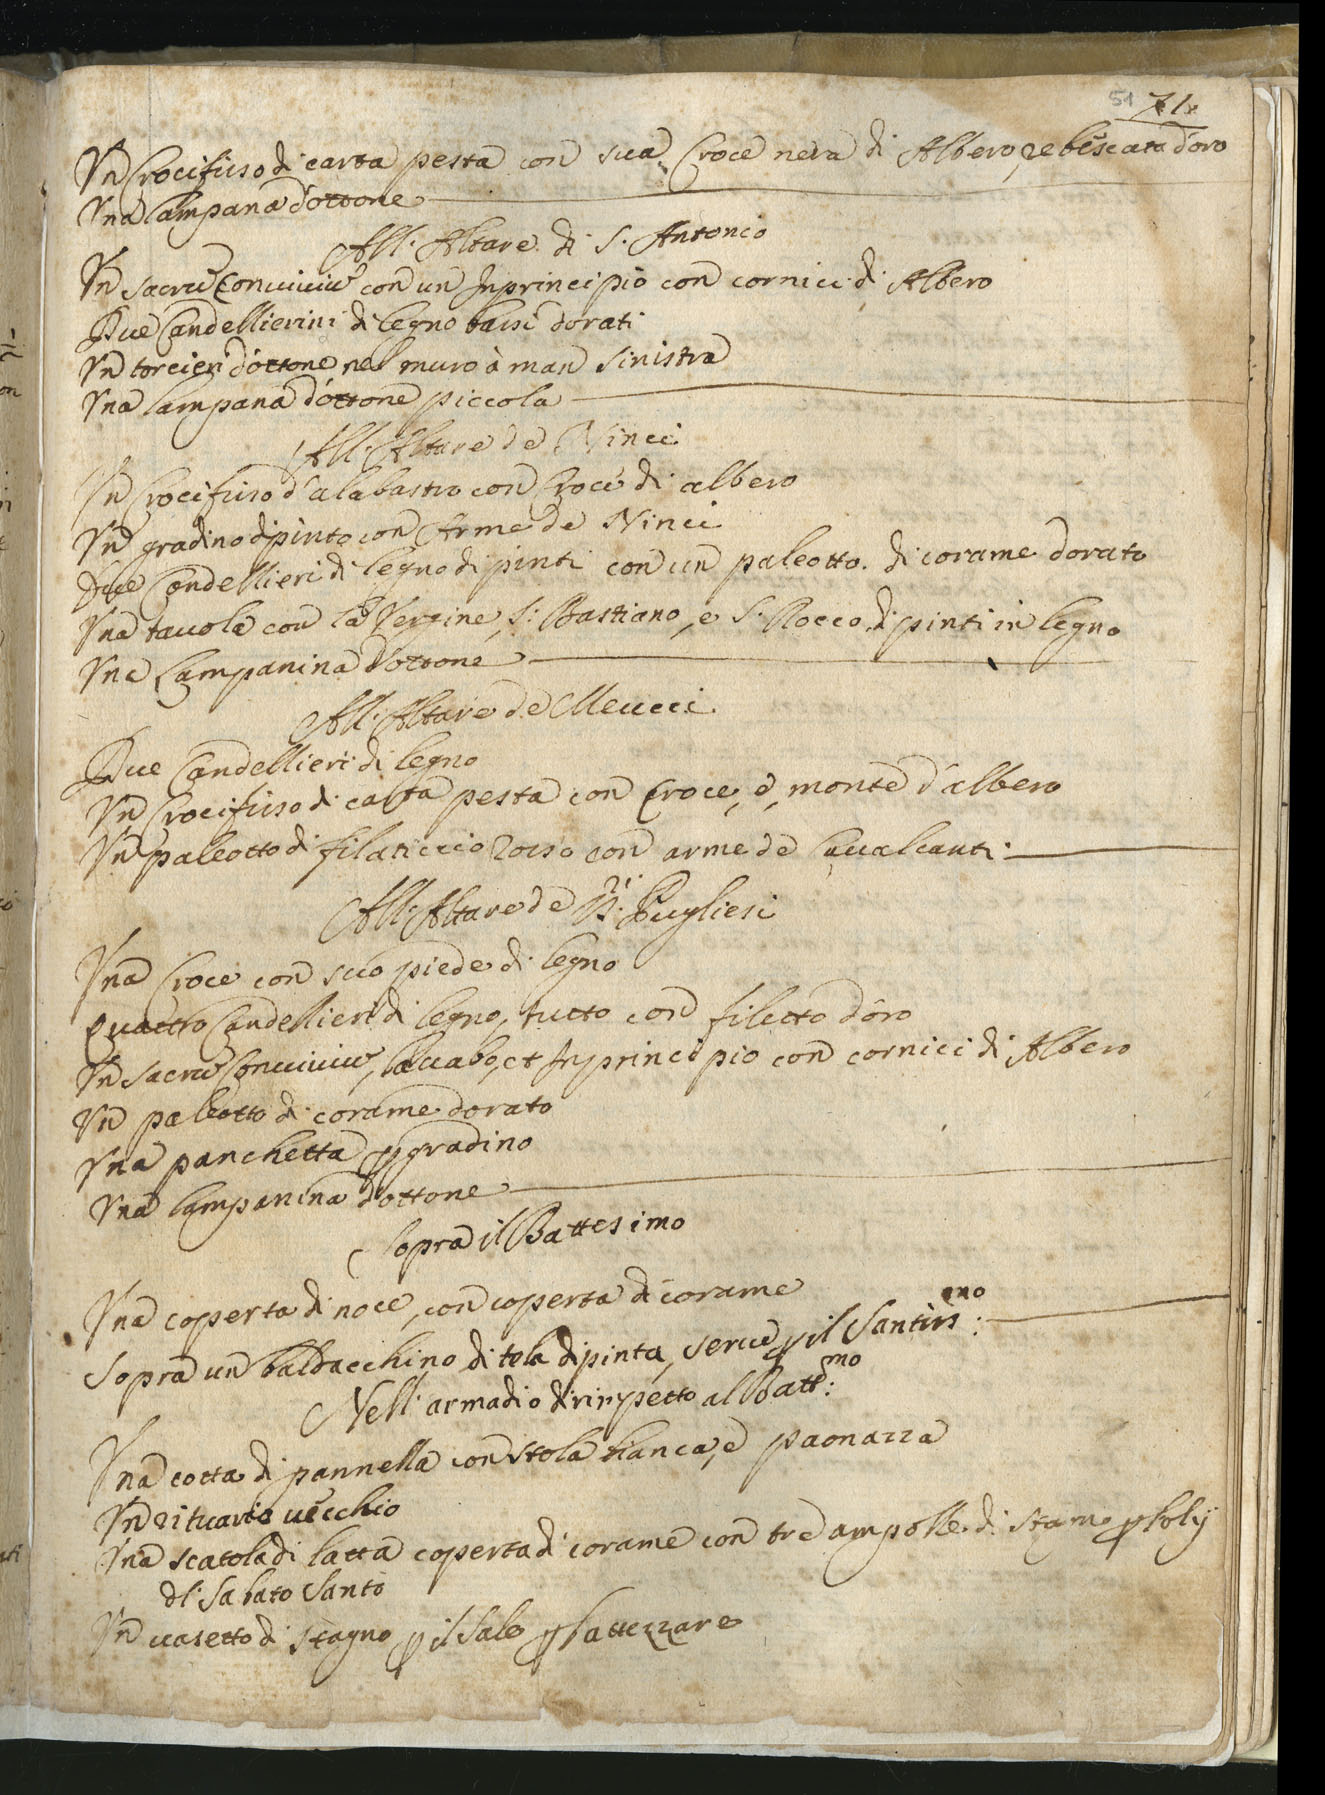 51 71.
Un Crocifisso di carta pesta con sua Croce nera di Albero, rebescata d'oro
Una lampana d'ottone
All'Altare di S. Antonio
Un sacrũ Conviuiũ con un Inprincipio con cornici di Albero
Due Candellierini di legno bassi dorati
Un torcier d'ottone nel muro à man sinistra
Una lampana d'ottone piccola
All'Altare de Ninci
Un Crocifisso d'alabastro con Croce di albero
Un gradino dipinto con Arme de Ninci
Due Candellieri di legno dipinti con un paleotto di corame dorato
Una tauola con la Vergine, S. Bastiano, e S. Rocco dipinti in legno
Una Lampanina d'ottone
All'Altare de Meucci
Due Candellieri di legno
Un Crocifisso di carta pesta con Croce, e monte d'albero
Un paleotto di filaticcio rosso con arme de Caualcanti
All'Altare de Pugliesi
Una Croce con suo piede di legno
Quattro Candellieri di legno, tutto con filetto d'oro
Un sacrũ Conuiuiũ, lauabo, et Inprincipio con cornici di Albero
Un paleotto di corame dorato
Una panchetta p gradino
Una lampanina d'ottone
Sopra il Battesimo
Una coperta di noce, con coperta di corame
Sopra un baldacchino di tela dipinta, serue p il Santiss:mo
Nell'armadio dirinpetto al Batt:mo
Una cotta di pannella con stola bianca, e paonazza
Un rituario uecchio
Una scatola di latta coperta di corame con tre ampolle di stagno p holij
dl Sabato Santo
Un uasetto di stagno p il Sale p battezzare